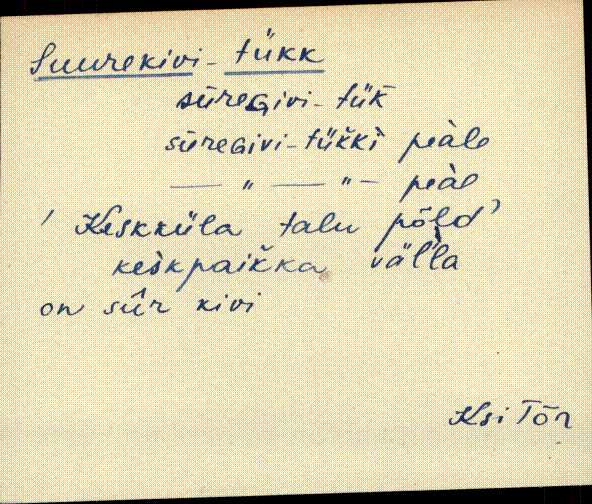 Suurekivi-tükk
sūreGivi-tük̄
sūreGivi-tük̆k̀i peàle
— " — " — peàl
' Keskküla talu põld'
keskpaik̆ka väl'la
on sûr kivi
Ksi Tõn